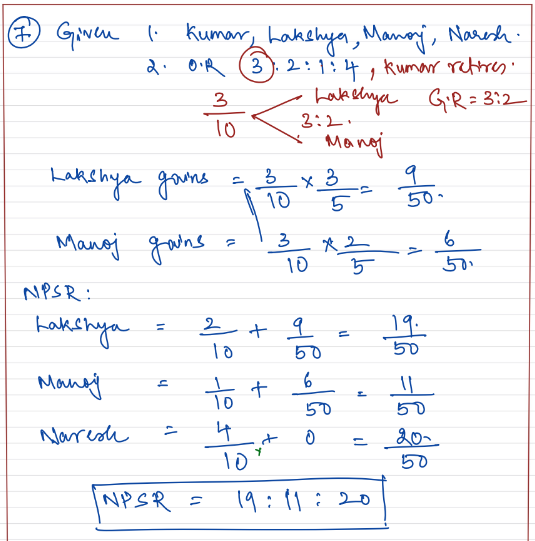 7 Given 1. Kumar, Lakshya, Manoj, Naresh.
2. O.R 3:2:1:4, Kumar retires.
3/10 Lakshya G.R = 3:2
3:2.
Manoj
Lakshya gains = 3/10 × 3/5 = 9/50.
Manoj gains = 3/10 × 2/5 = 6/50.
NPSR:
Lakshya = 2/10 + 9/50 = 19/50
Manoj = 1/10 + 6/50 = 11/50
Naresh = 4/10 + 0 = 20/50
NPSR = 19:11:20